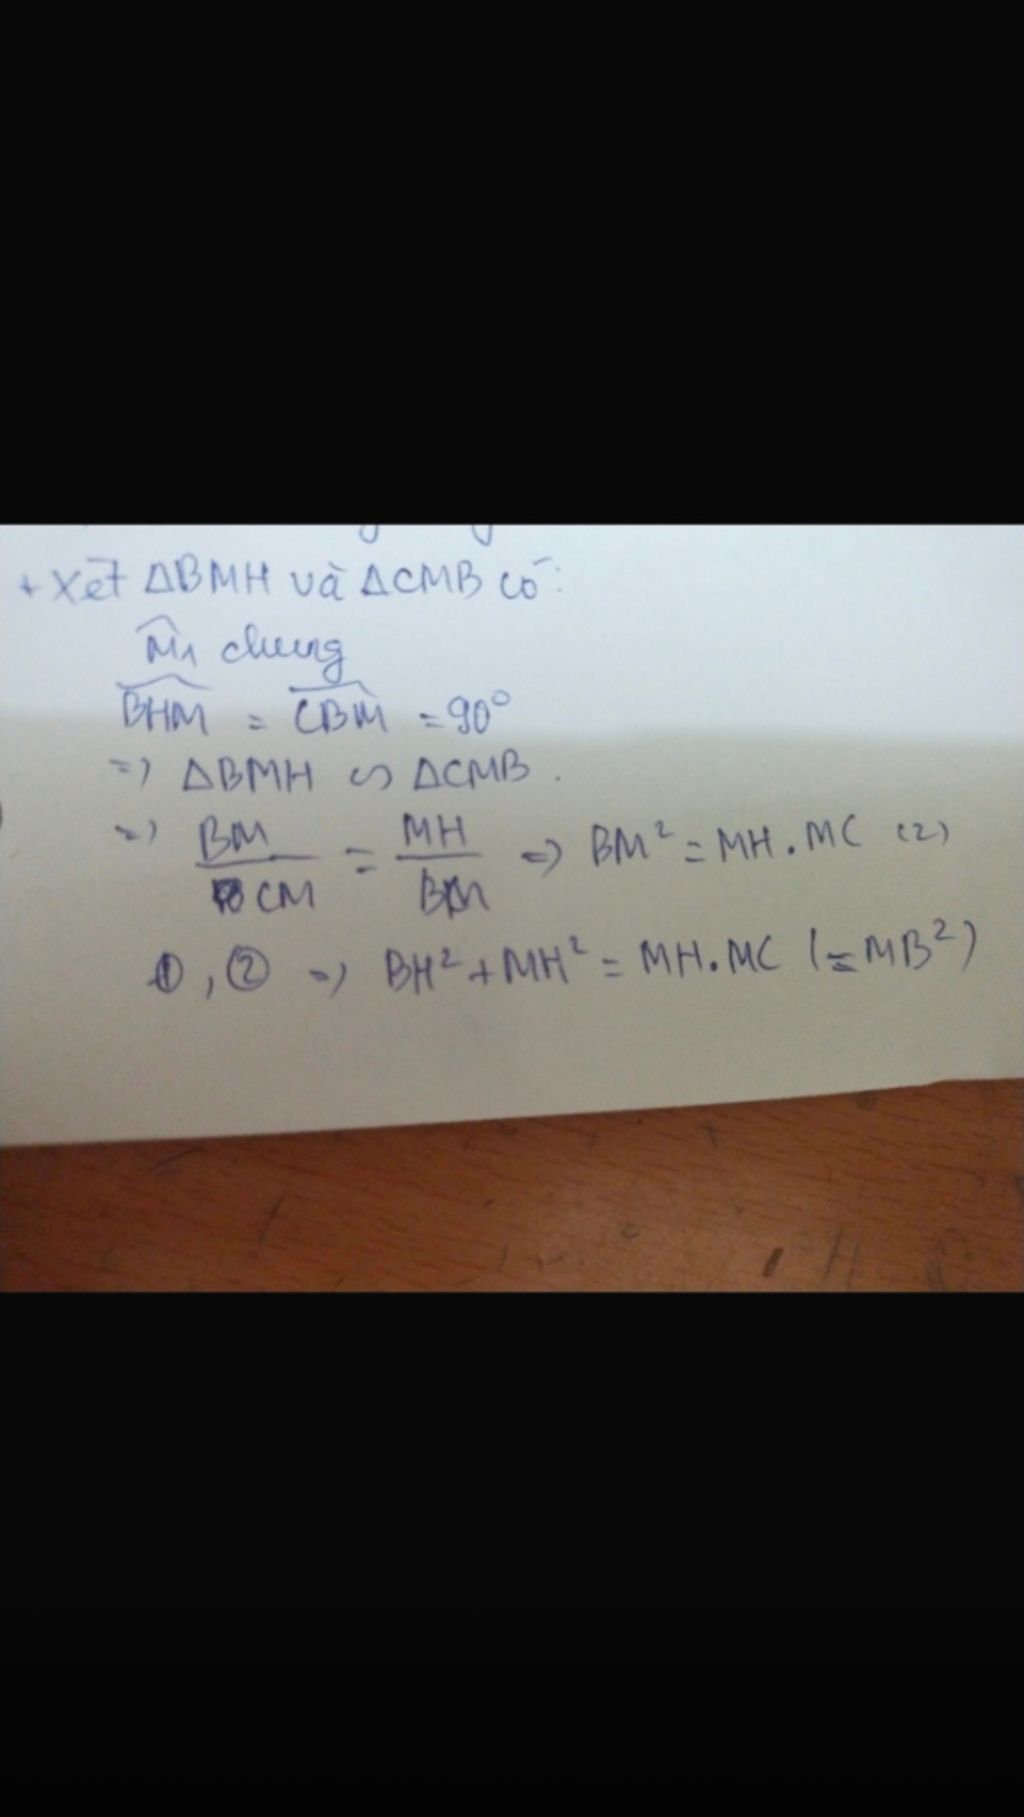 + Xét ΔBMH và ΔCMB có:
M̂₁ chung
B̂HM = ĈBM = 90°
=> ΔBMH ∽ ΔCMB.
=> BM/CM = MH/BM => BM² = MH.MC (2)
①, ② => BH² + MH² = MH.MC (= MB²)